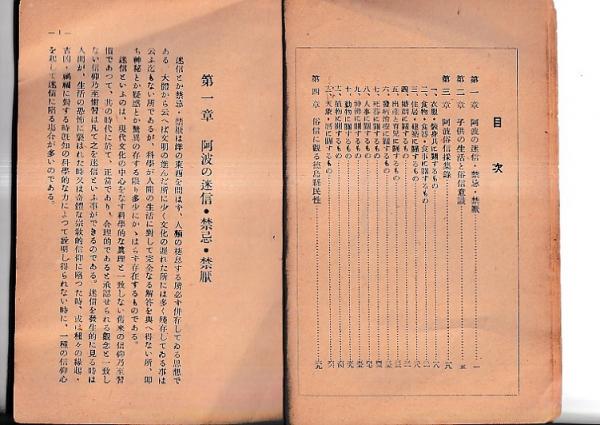 目次
第一章 阿波の迷信・禁忌・禁厭
第二章 子供の生活と俗信意識
第三章 阿波俗信採集錄
一、衣服・裝身具に關するもの
二、食物・食器・炊事に關するもの
三、住居・建築に關するもの
四、婚姻に關するもの
五、出產と育兒に關するもの
六、發病治療に關するもの
七、死葬に關するもの
八、人事に關するもの
九、特禱に關するもの
十、動物に關するもの
十一、植物に關するもの
十二、天象・曆に關するもの
第四章 俗信に觀る德島縣民性
— 1 —
第一章 阿波の迷信・禁忌・禁厭
迷信とか禁忌・禁厭は洋の東西を問はず、人類の棲息する所必ず併存してゐる思想で
ある。大體から云へば文明の進んだ所に少く文化の遲れた所には多く殘存してゐる事は
云ふ迄もない所であるが、科學が人間の生活に對して完全なる解答を與へ得ない所、卽
ち神秘とか疑惑とか驚異の存する限り多少にかゝはらず存在するものである。
迷信といふのは、現代文化の中心をなす科學的な眞理と一致しない舊來の信仰乃至習
俗であつて、其の時代に於て、正當であり、合理的であると承認せられる觀念と一致し
ない信仰乃至習俗は凡て之を迷信といふ事ができるのである。迷信を發生的に見る時は
人間が、生活の恐怖に襲はれた時又は奇體な宗敎的信仰に陷つた時、或は種々の緣起・
吉凶・禍福に對する時旣知の科學的な力によつて說明し得られない時に、一種の信仰心
を起して迷信に陷る場合が多いのである。